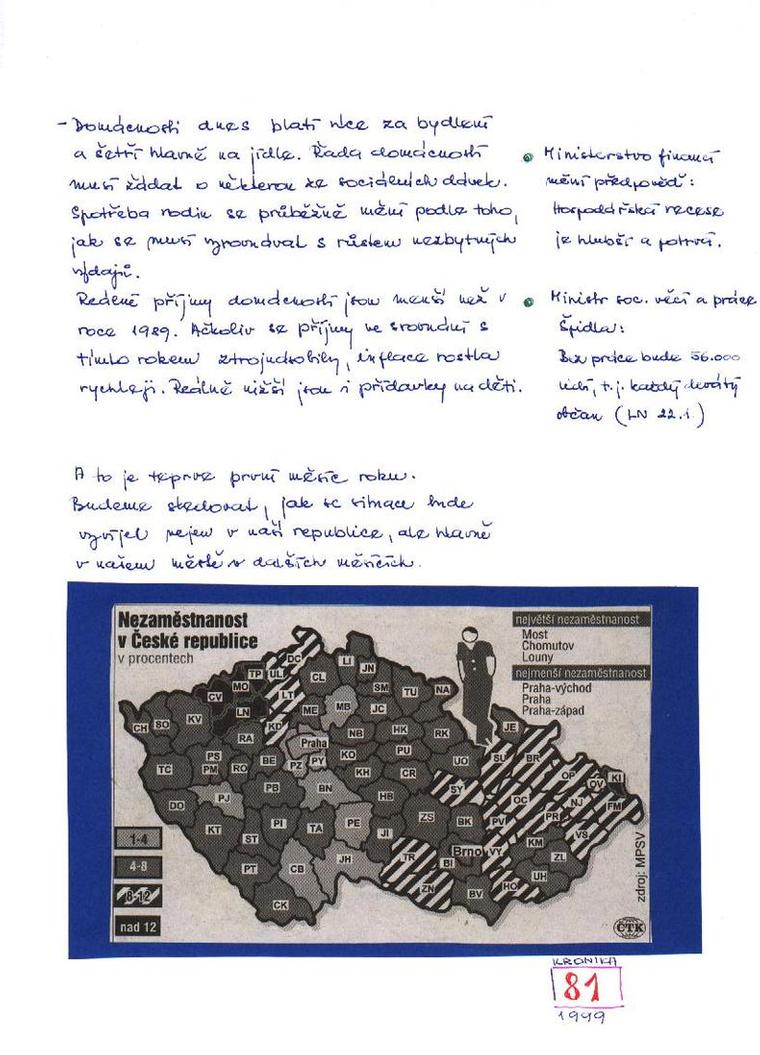 - Domácnosti dnes platí více za bydlení
a šetří hlavně na jídle. Řada domácností
musí žádat o některou ze sociálních dávek.
Spotřeba rodin se průběžně mění podle toho,
jak se musí vyrovnávat s růstem nezbytných
výdajů.
Reálné příjmy domácností jsou menší než v
roce 1989. Ačkoliv se příjmy ve srovnání s
tímto rokem ztrojnásobily, inflace rostla
rychleji. Reálně nižší jsou i přídavky na děti.
• Ministerstvo financí
mění předpověď:
Hospodářská recese
je hlubší a potrvá.
• Ministr soc. věcí a práce
Špidla:
Bez práce bude 56.000
lidí, t.j. každý devátý
občan (LN 22.1.)
A to je teprve první měsíc roku.
Budeme sledovat, jak se situace bude
vyvíjet nejen v naší republice, ale hlavně
v našem městě v dalších měsících.
Nezaměstnanost
v České republice
v procentech
největší nezaměstnanost
Most
Chomutov
Louny
nejmenší nezaměstnanost
Praha-východ
Praha
Praha-západ
DC
LI
JN
TP
UL
CL
SM
TU
NA
CV
MO
LT
LN
ME
MB
JC
CH
SO
KV
KD
RA
Praha
NB
HK
RK
JE
PS
PM
RO
BE
PZ
PY
KO
PU
UO
SU
BR
TC
KH
CR
OP
OV
KI
DO
PJ
PB
BN
HB
SY
OC
NJ
FM
KT
PI
TA
PE
ZS
BK
PV
PR
VS
ST
JI
Brno
VY
KM
ZL
PT
CB
JH
TR
BI
UH
CK
ZN
BV
HO
1-4
4-8
8-12
nad 12
zdroj: MPSV
ČTK
KRONIKA
81
1999